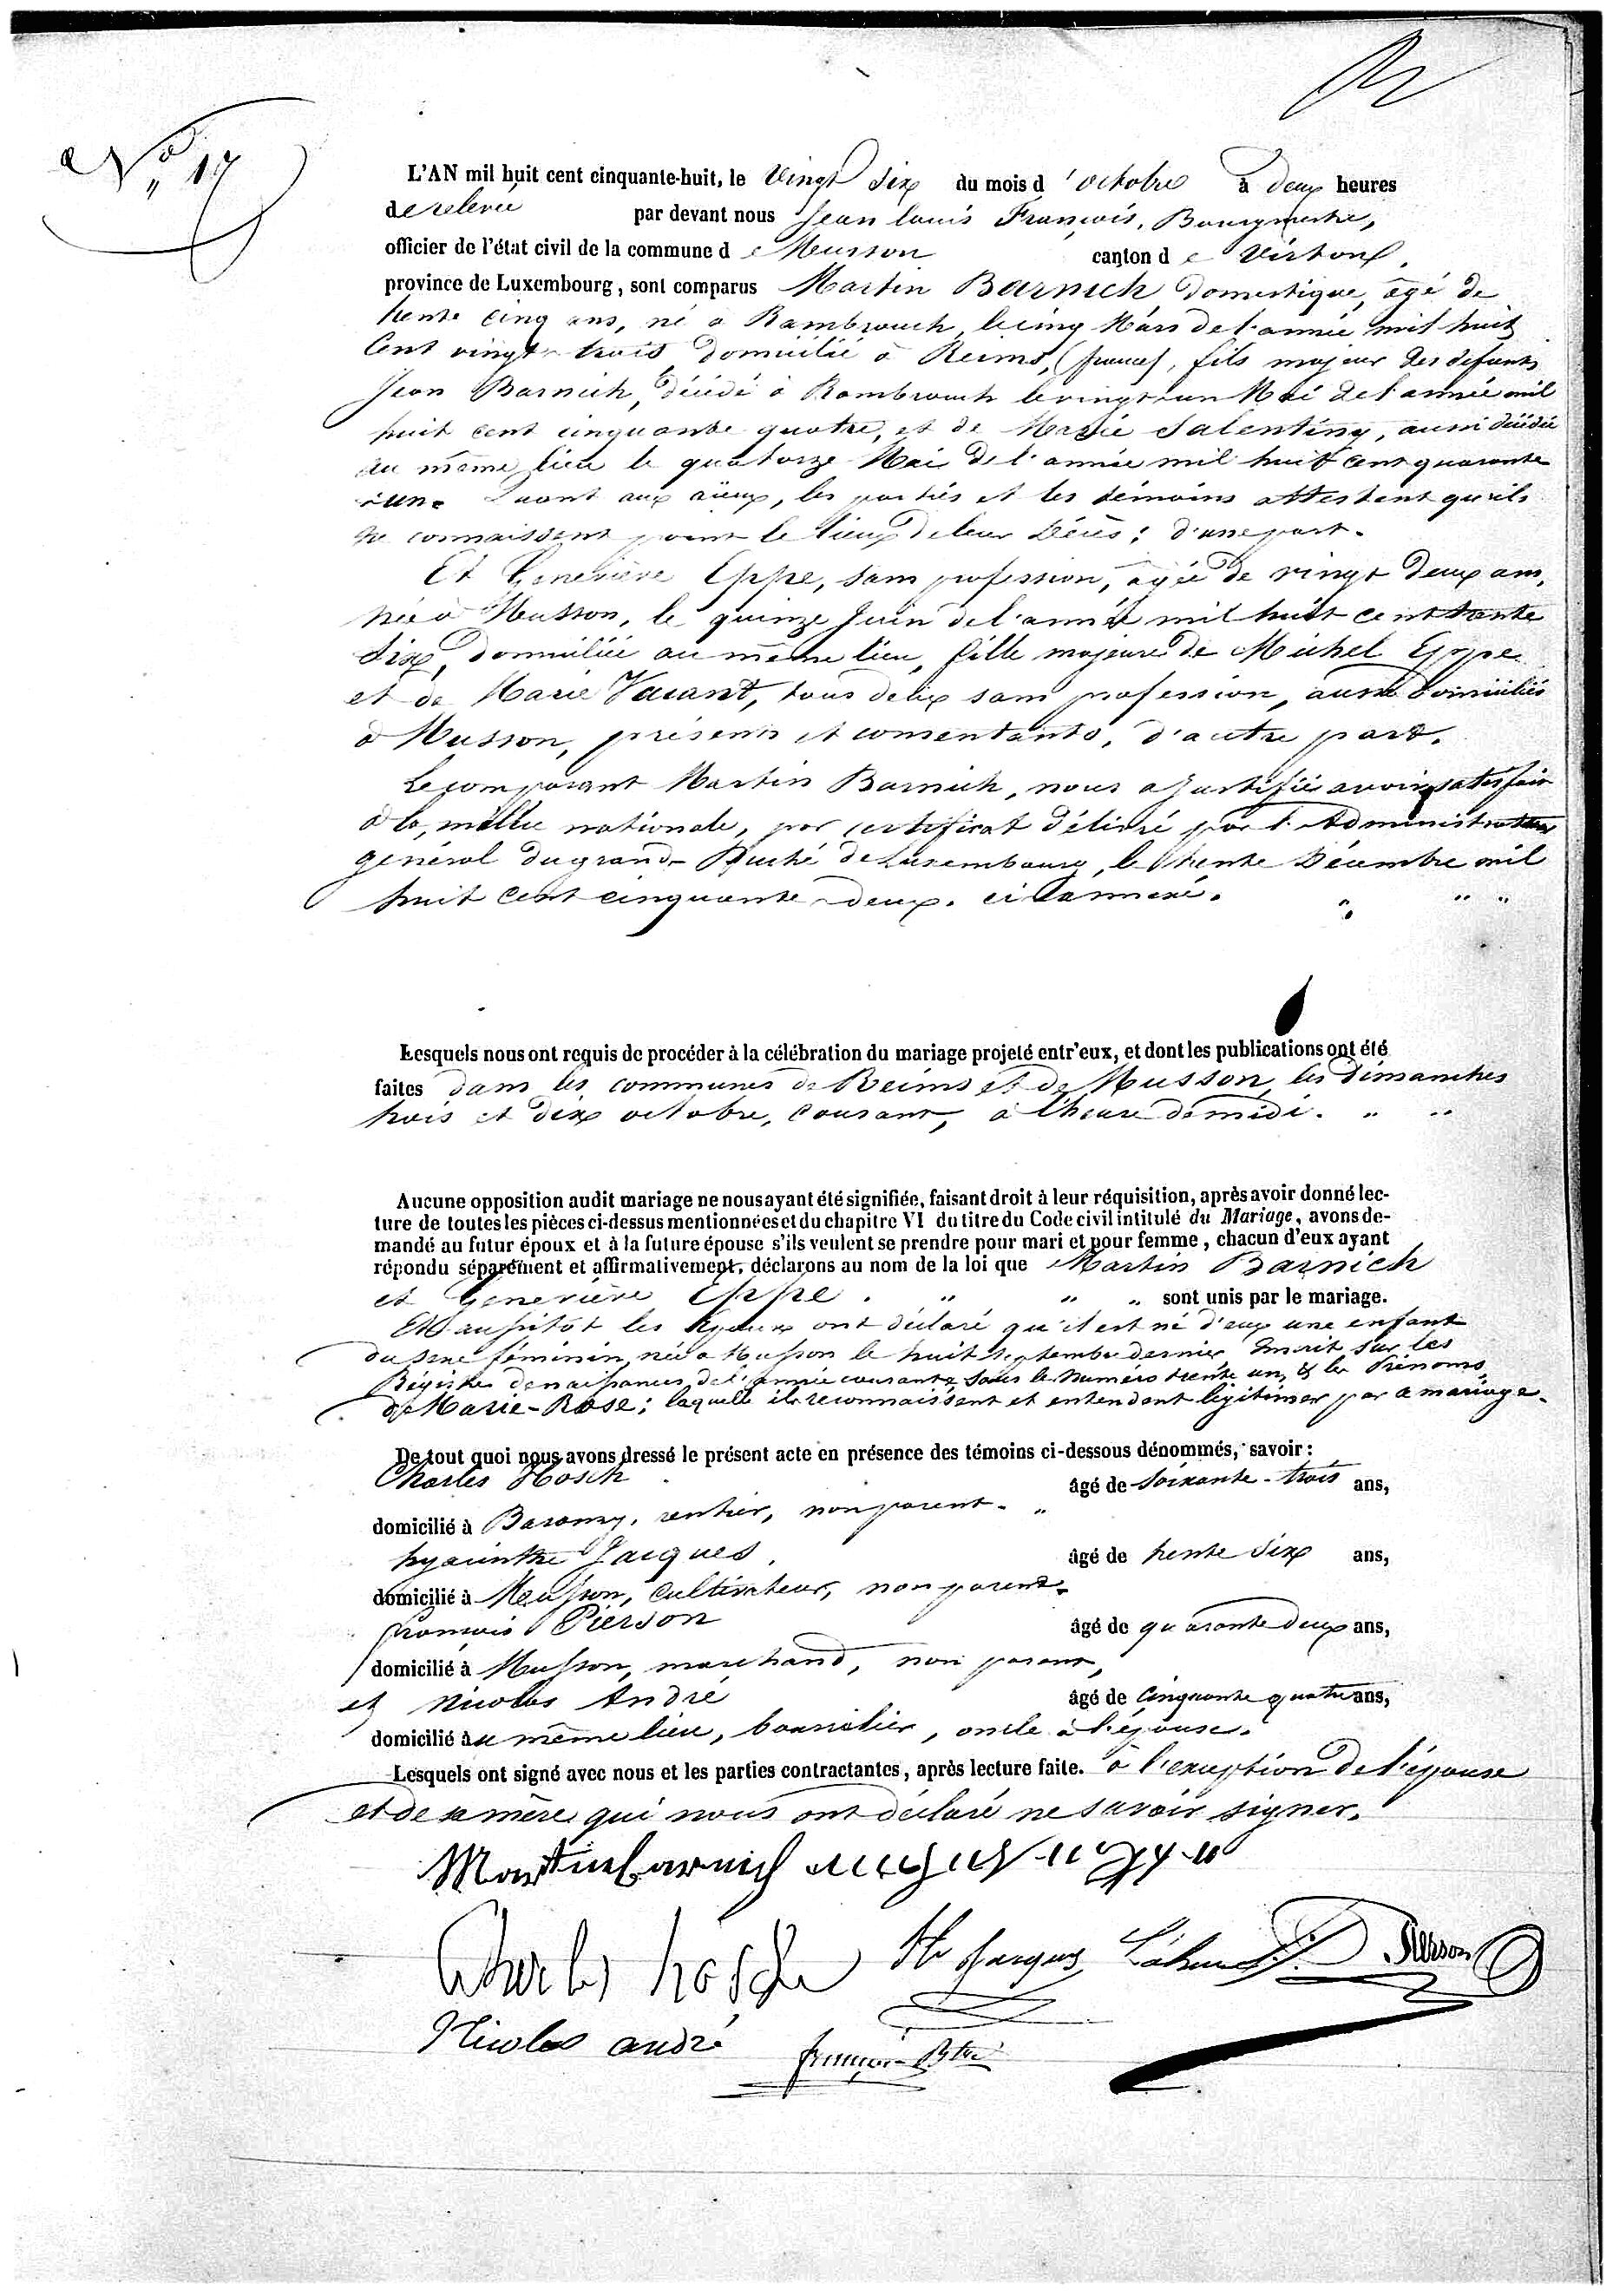 N° 17
L'AN mil huit cent cinquante-huit, le Vingt six du mois d'octobre à deux heures
de relevée par devant nous Jean Louis François, Bourgmestre,
officier de l'état civil de la commune de Musson canton de Virton,
province de Luxembourg, sont comparus Martin Barnich domestique, âgé de
trente cinq ans, né à Rambrouch, le cinq Mars de l'année mil huit
Cent vingt-trois domicilié à Reims, (france), fils majeur des défunts
Jean Barnich, décédé à Rambrouch le vingt-un Mai de l'année mil
huit cent cinquante quatre, et de Marie Salentiny, aussi décédée
au même lieu le quatorze Mai de l'année mil huit cent quarante
-un. Quant aux aïeux, les parties et les témoins attestent qu'ils
ne connaissent point le lieux de leur Décès; d'une part.
Et Geneviève Eppe, sans profession, âgée de vingt deux ans,
née à Musson, le quinze Juin de l'année mil huit cent trente
Six, domiciliée au même lieu, fille majeure de Michel Eppe
et de Marie Vacant, tous deux sans profession, aussi domiciliés
à Musson, présents et consentants, d'autre part.
Le comparant Martin Barnich, nous a justifié avoir satisfait
à la milice nationale, par certificat délivré par l'Administrateur
général du grand-Duché de Luxembourg, le trente Décembre mil
huit cent cinquante-deux. ci-annexé. " " "
Lesquels nous ont requis de procéder à la célébration du mariage projeté entr'eux, et dont les publications ont été
faites dans les communes de Reims et de Musson, les dimanches
trois et dix octobre, courant, à l'heure de midi. " "
Aucune opposition audit mariage ne nous ayant été signifiée, faisant droit à leur réquisition, après avoir donné lec-
ture de toutes les pièces ci-dessus mentionnées et du chapitre VI du titre du Code civil intitulé du Mariage, avons de-
mandé au futur époux et à la future épouse s'ils veulent se prendre pour mari et pour femme, chacun d'eux ayant
répondu séparément et affirmativement, déclarons au nom de la loi que Martin Barnich
et Geneviève Eppe. " " " sont unis par le mariage.
Et aussitôt les époux ont déclaré qu'il est né d'eux une enfant
du sexe féminin, née à Musson le huit septembre dernier inscrit sur les
Régistres de naissances de l'année courante sous le numéro trente un, & les Prénoms
de Marie-Rose; laquelle ils reconnaissent et entendent légitimer par ce mariage.
De tout quoi nous avons dressé le présent acte en présence des témoins ci-dessous dénommés, savoir:
Charles Hosch âgé de soixante-trois ans,
domicilié à Baranzy, rentier, non parent. "
hyacinthe Jacques, âgé de trente six ans,
domicilié à Musson, Cultivateur, non parent.
françois Pierson âgé de quarante deux ans,
domicilié à Musson, marchand, non parent,
et Nicolas André âgé de cinquante quatre ans,
domicilié au même lieu, bourrelier, oncle à l'épouse.
Lesquels ont signé avec nous et les parties contractantes, après lecture faite. à l'exception de l'épouse
et de sa mère qui nous ont déclaré ne savoir signer.
Martin barnich
Charles hosch Hte Jacques Pierson
Nicolas andré françois Btre